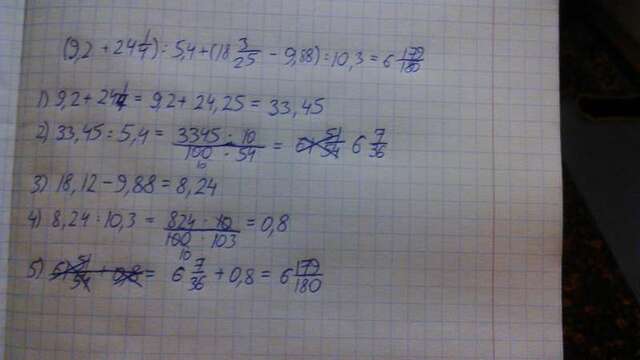 (9,2 + 24 1/4) : 5,4 + (18 3/25 - 9,88) : 10,3 = 6 179/180
1) 9,2 + 24 1/4 = 9,2 + 24,25 = 33,45
2) 33,45 : 5,4 = 3345 · 10 / 100 · 54 = 6 7/36
10
3) 18,12 - 9,88 = 8,24
4) 8,24 : 10,3 = 824 · 10 / 100 · 103 = 0,8
10
5) = 6 7/36 + 0,8 = 6 179/180